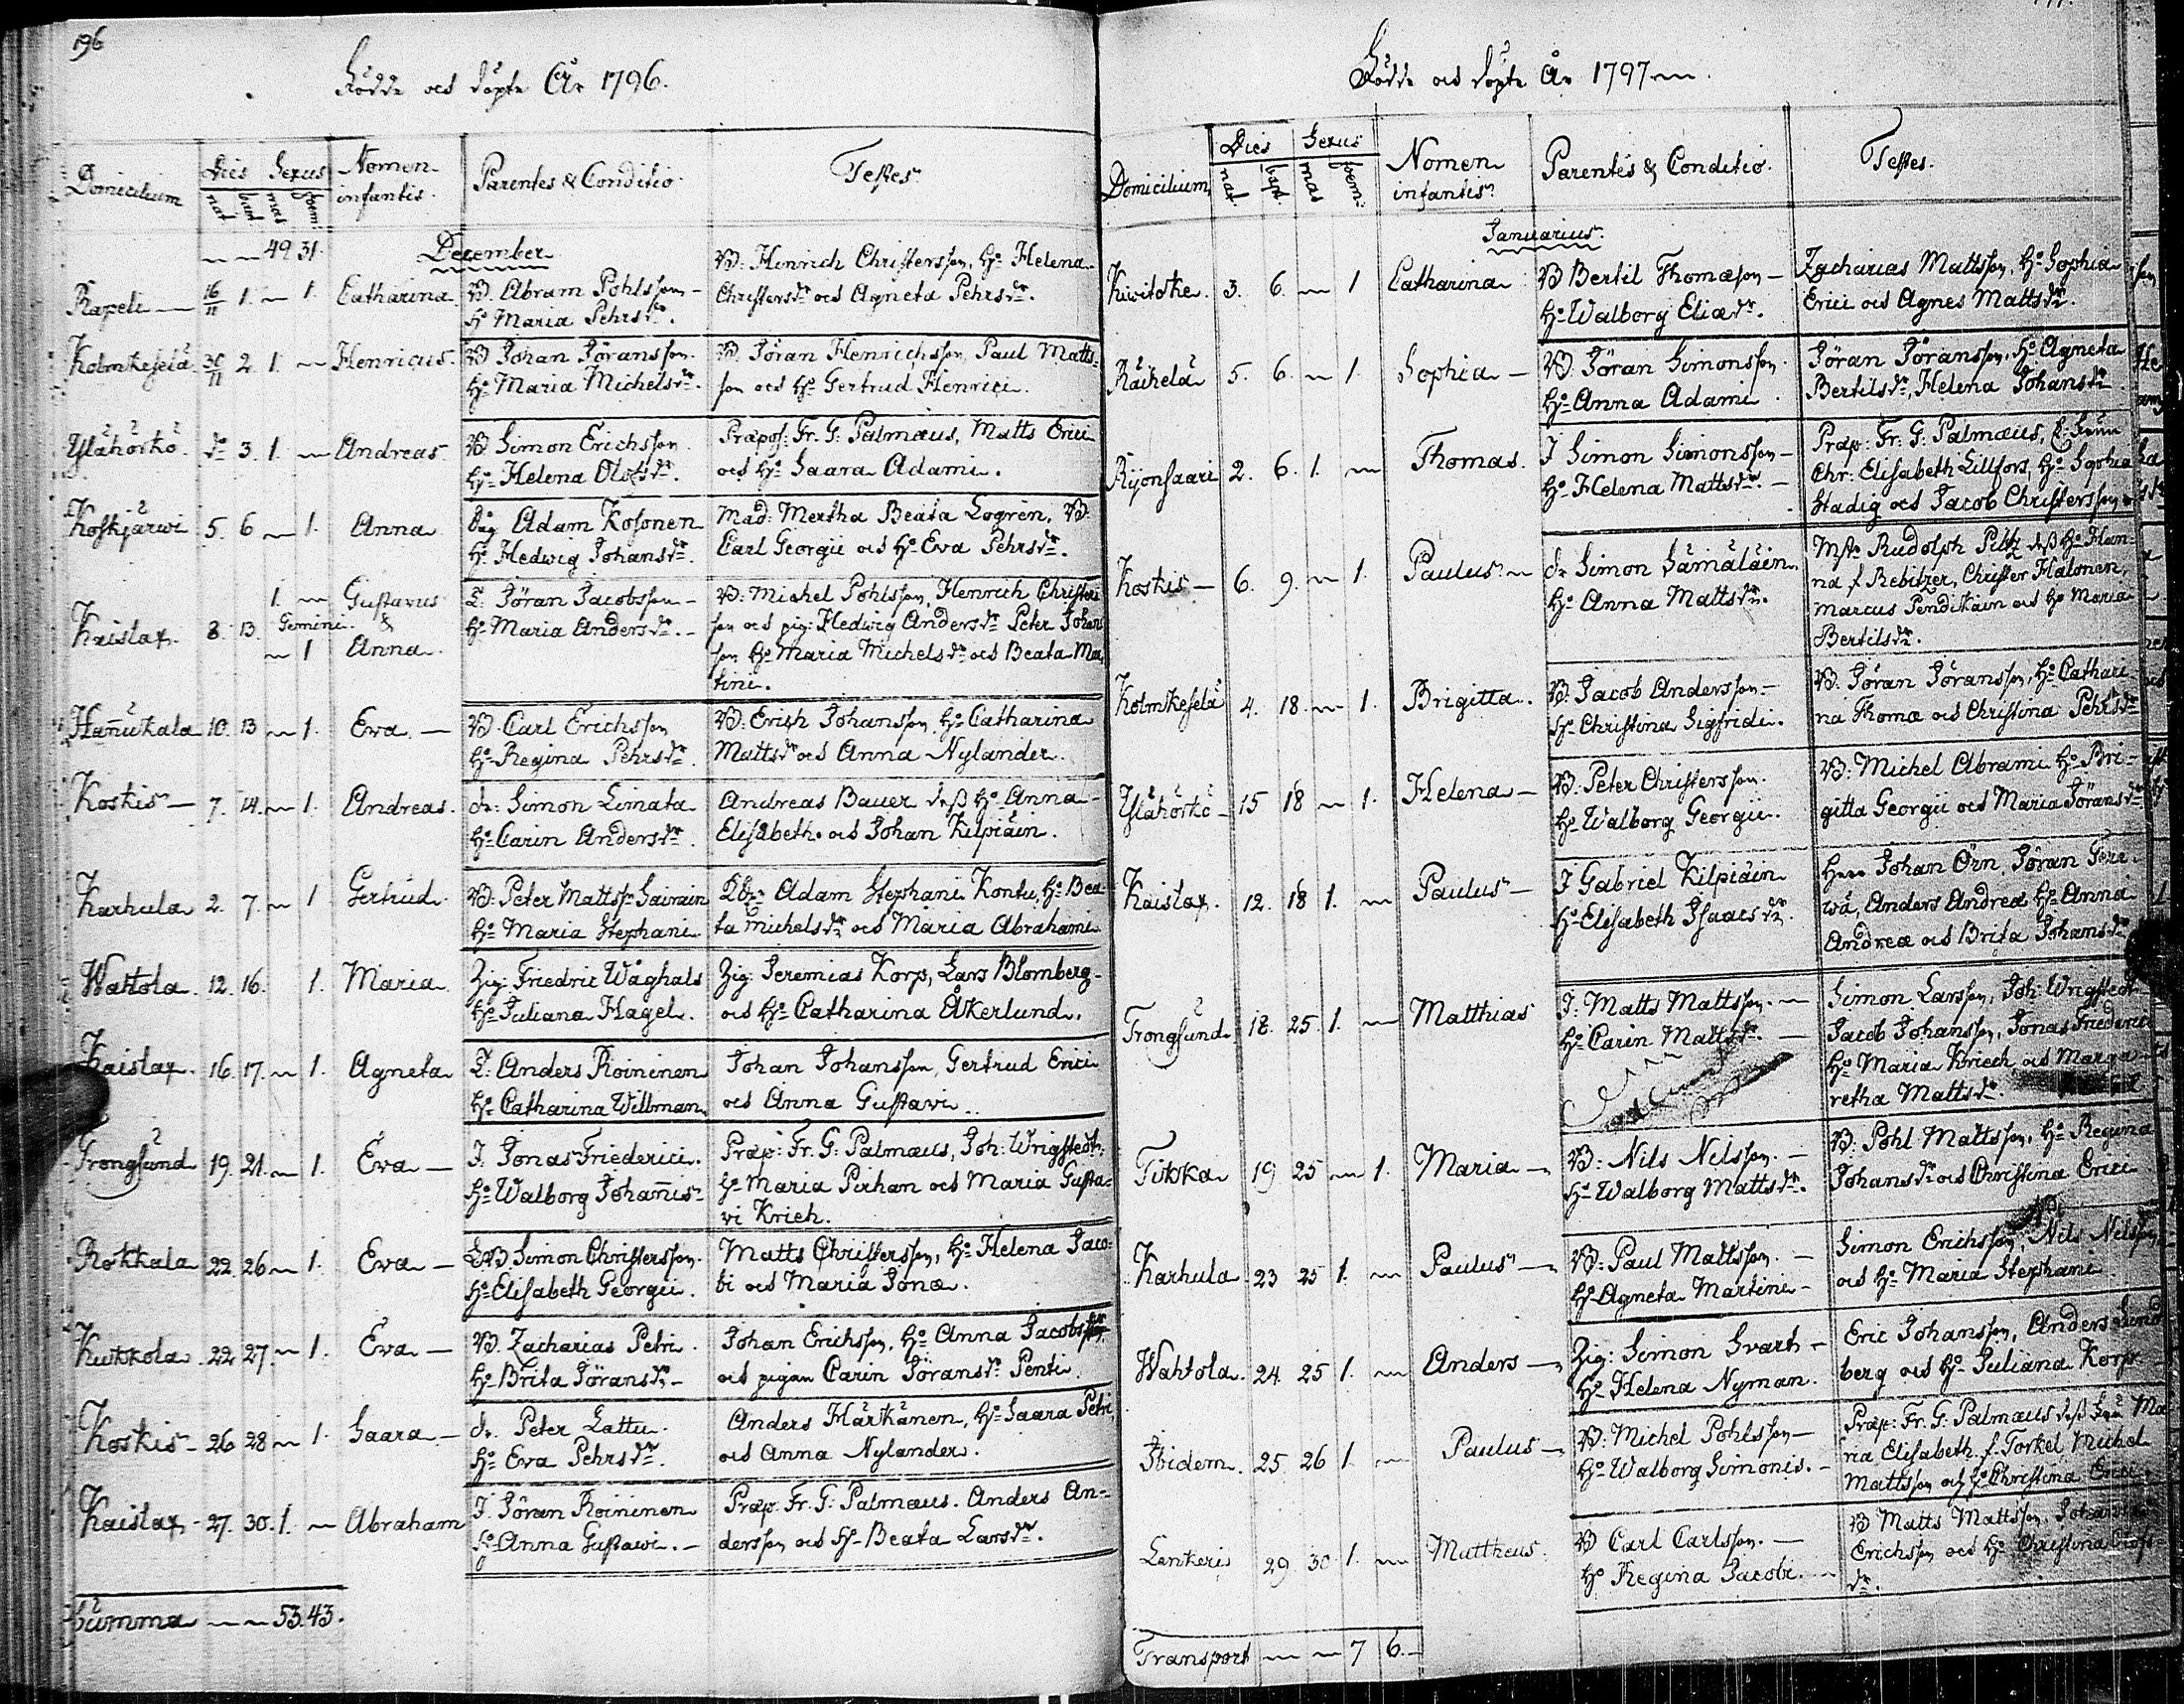 196
Födde och döpte År 1796.
Domicilium Dies Sexus Nomen infantis. Parentes & Conditio Testes
nat. bapt. mas foem.
49 31. December
Rapeli 16/11 1. 1. Catharina B. Abram Pohlsson Hu Maria Pehrsdr. B. Hinrich Christersson, Hu Helena Christersdr och Agneta Pehrsdr.
Kolmikeselä 30/11 2. 1. Henricus. B Johan Jöransson. Hu Maria Michelsdr. B. Jöran Henrichsson, Paul Mattsson och Hu Gertrud Henrici.
Ylähörkö. do 3. 1. Andreas. B Simon Erichsson. Hu Helena Olofsdr. Præpos: Fr. G: Palmæus, Matts Erici och Hu Saara Adami.
Koskjärwi 5. 6 1. Anna Adam Kosonen Hu Hedwig Johansdr. Mad: Mertha Beata Logren, B. Carl Georgii och Hu Eva Pehrsdr.
Kaislax. 8. 13. 1. Gustavus Gemini & 1 Anna. Jöran Jacobsson Hu Maria Andersdr. B: Michel Pohlsson, Henrich Christersson och pig: Hedwig Andersdr Peter Johansson Hu Maria Michelsdr och Beata Martini.
Hañukala 10. 13 1. Eva B. Carl Erichsson Hu Regina Pehrsdr. B: Erich Johansson, Hu Catharina Mattsdr och Anna Nylander.
Koskis 7. 14. 1. Andreas. dr: Simon Limata Hu Carin Andersdr. Andreas Bauer dess Hu Anna Elisabeth och Johan Kilpiäin.
Karhula 2. 7. 1 Gertrud. B. Peter Mattsson Sairain Hu Maria Stephani Adam Stephani Kontu, Hu Beata Michelsdr och Maria Abrahami
Wattola 12. 16. 1. Maria. Zig: Friedric Wåghals Hu Juliana Hagel. Zig: Jeremias Korp, Lars Blomberg och Hu Catharina Åkerlund.
Kaislax. 16. 17. 1. Agneta Anders Roininen Hu Catharina Willman. Johan Johansson, Gertrud Erici och Anna Gustavi.
Trongsund 19. 21. 1. Eva I. Jonas Friederici. Hu Walborg Johañis Præp: Fr. G: Palmæus, Joh: Wrigstedt, Hu Maria Pirhan och Maria Gustavi Krieh.
Rokkala 22. 26 1. Eva Simon Christersson. Hu Elisabeth Georgii. Matts Christersson, Hu Helena Jacobi och Maria Jonæ.
Kukkola 22. 27. 1. Eva B. Zacharias Petri. Hu Brita Jöransdr Johan Erichsson, Hu Anna Jacobsdr, och pigan Carin Jöransdr Penti.
Koskis 26 28 1. Saara dr. Peter Lattu. Hu Eva Pehrsdr. Anders Härkänen, Hu Saara Petri och Anna Nylander.
Kaislax 27. 30. 1. Abraham I Jöran Roininen Hu Anna Gustavi. Præp. Fr. G: Palmæus. Anders Andersson och Hu Beata Larsdr.
Summa 53. 43.
Födde och döpte År 1797
Domicilium Dies Sexus Nomen infantis. Parentes & Conditio. Testes.
nat. bapt. mas foem.
Januarius.
Kiwitoke. 3. 6. 1 Catharina B Bertil Thomæson Hu Walborg Eliædr. Zacharias Mattsson, Hu Sophia Erici och Agnes Mattsdr.
Räihelä 5. 6. 1. Sophia B. Jöran Simonsson. Hu Anna Adami. Jöran Jöransson, Hu Agneta Bertilsdr, Helena Johansdr.
Rijonsaari 2. 6. 1. Thomas. I Simon Simonsson Hu Helena Mattsdr. Præp: Fr: G: Palmæus, Chr: Elisabeth Lillfors, Hu Sophia Stadig och Jacob Christersson
Koskis 6. 9. 1. Paulus dr Simon Sämäläin. Hu Anna Mattsdr. Rudolph Piltz dess Hu Hanna f. Rebitzer, Christer Halonen, Marcus Pendikäin och Hu Maria Bertilsdr.
Kolmikeselä 4. 18. 1. Brigitta. B. Jacob Andersson Hu Christina Sigfridi. B. Jöran Jöransson, Hu Catharina Thomæ och Christina Pehrsdr
Ylähörkö 15 18 1. Helena B: Peter Christersson. Hu Walborg Georgii. B: Michel Abrami Hu Brigitta Georgii och Maria Jöransdr
Kaislax. 12. 18 1. Paulus I Gabriel Kilpiäin Hu Elisabeth Isaacsdr. Herr Johan Örn, Jöran Terewä, Anders Andreæ Hu Anna Andreæ och Brita Johansdr
Trongsund 18. 25. 1. Matthias I: Matts Mattsson. Hu Carin Mattsdr. Simon Larsson, Joh: Wrigstedt Jacob Johansson, Jonas Friederici Hu Maria Krieh och Margaretha Mattsdr.
Tikka 19 25 1. Maria B: Nils Nilsson. Hu Walborg Mattsdr. B: Pohl Mattsson, Hu Regina Johansdr och Christina Erici
Karhula 23 25 1. Paulus B: Paul Mattsson. Hu Agneta Martini Simon Erichsson, Nils Nilsson, och Hu Maria Stephani
Wahtola. 24. 25 1. Anders Zig: Simon Svarth Hu Helena Nyman. Eric Johansson, Anders Lindberg och Hu Juliana Korp
Ibidem. 25. 26 1. Paulus B: Michel Pohlsson Hu Walborg Simonis. Præp: Fr. G: Palmæus dess Fru Maria Elisabeth f. Torkel, Michel Mattsson och Hu Christina Erici
Lankeri 29. 30 1. Mattheus. B Carl Carlsson. Hu Regina Jacobi. B Matts Mattsson, Johan Erichsson och Hu Christina
Transport 7 6.